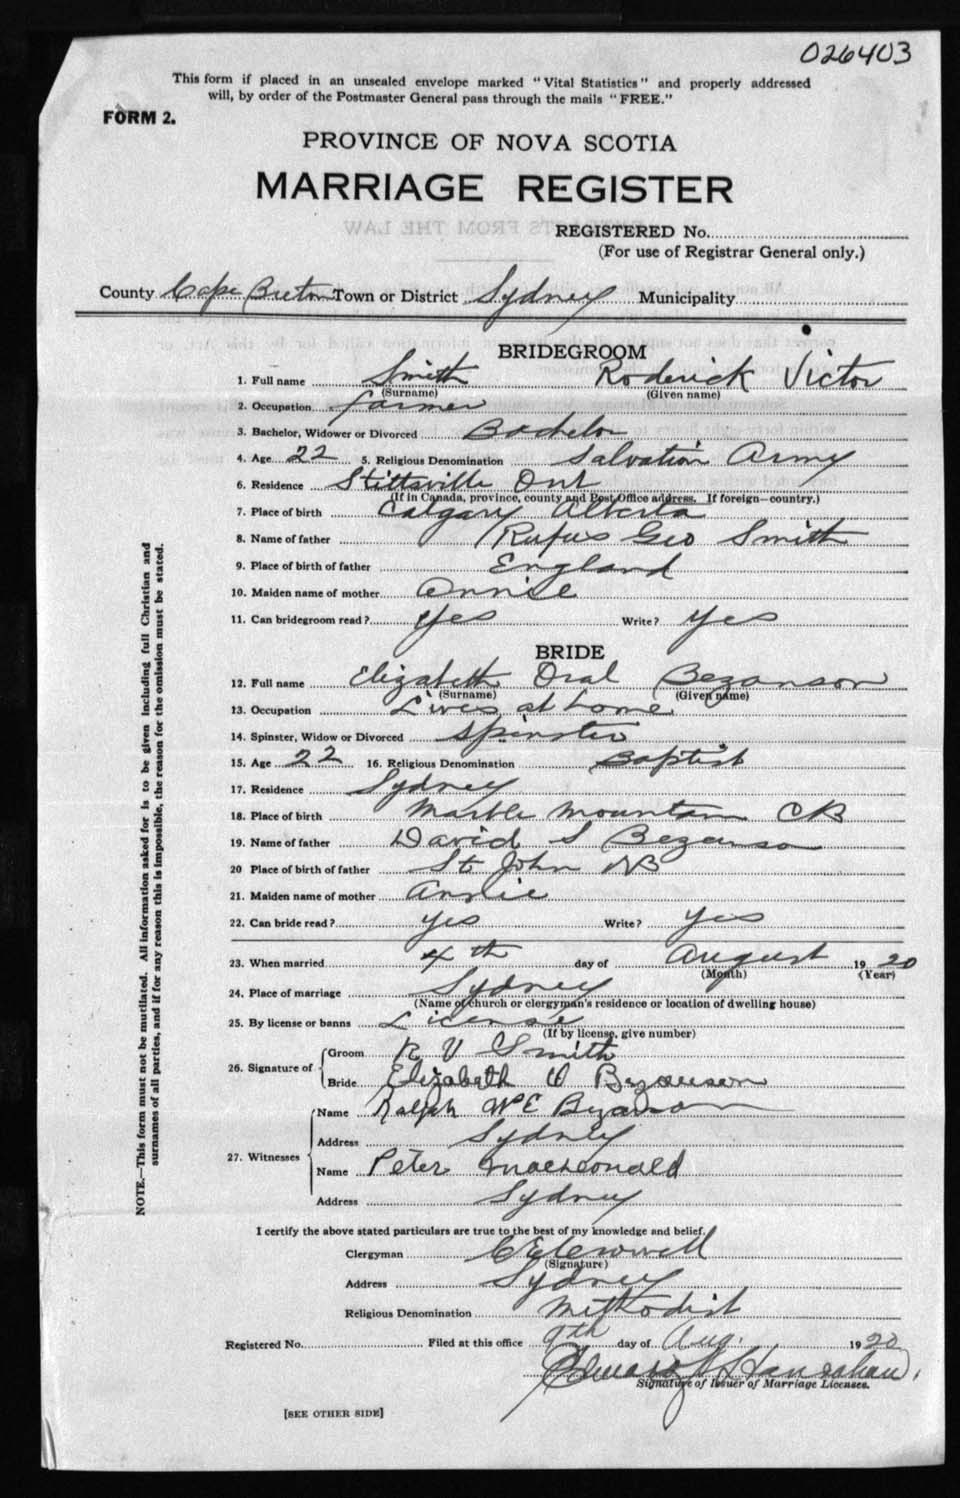 026403
This form if placed in an unsealed envelope marked "Vital Statistics" and properly addressed
will, by order of the Postmaster General pass through the mails "FREE."
FORM 2.
PROVINCE OF NOVA SCOTIA
MARRIAGE REGISTER
REGISTERED No.
(For use of Registrar General only.)
County Cape Breton Town or District Sydney Municipality
BRIDEGROOM
1. Full name Smith Roderick Victor
(Surname) (Given name)
2. Occupation farmer
3. Bachelor, Widower or Divorced Bachelor
4. Age 22 5. Religious Denomination Salvation Army
6. Residence Stittsville Ont
(If in Canada, province, county and Post Office address. If foreign—country.)
7. Place of birth Calgary Alberta
8. Name of father Rufus Geo Smith
9. Place of birth of father England
10. Maiden name of mother Annie
11. Can bridegroom read? Yes Write? Yes
BRIDE
12. Full name Elizabeth Oral Bezanson
(Surname) (Given name)
13. Occupation Lives at home
14. Spinster, Widow or Divorced Spinster
15. Age 22 16. Religious Denomination Baptist
17. Residence Sydney
18. Place of birth Marble Mountain CB
19. Name of father David S Bezanson
20 Place of birth of father St John NB
21. Maiden name of mother Annie
22. Can bride read? yes Write? yes
23. When married 4th day of August 1920
(Month) (Year)
24. Place of marriage Sydney
(Name of church or clergyman's residence or location of dwelling house)
25. By license or banns License
(If by license, give number)
26. Signature of Groom R V Smith
Bride Elizabeth O Bezanson
27. Witnesses Name Ralph Bezanson
Address Sydney
Name Peter MacDonald
Address Sydney
I certify the above stated particulars are true to the best of my knowledge and belief.
Clergyman
(Signature)
Address Sydney
Religious Denomination Methodist
Registered No. Filed at this office 9th day of Aug. 1920
Hanrahan
Signature of Issuer of Marriage Licenses.
[SEE OTHER SIDE]
NOTE.—This form must not be mutilated. All information asked for is to be given including full Christian and
surnames of all parties, and if for any reason this is impossible, the reason for the omission must be stated.